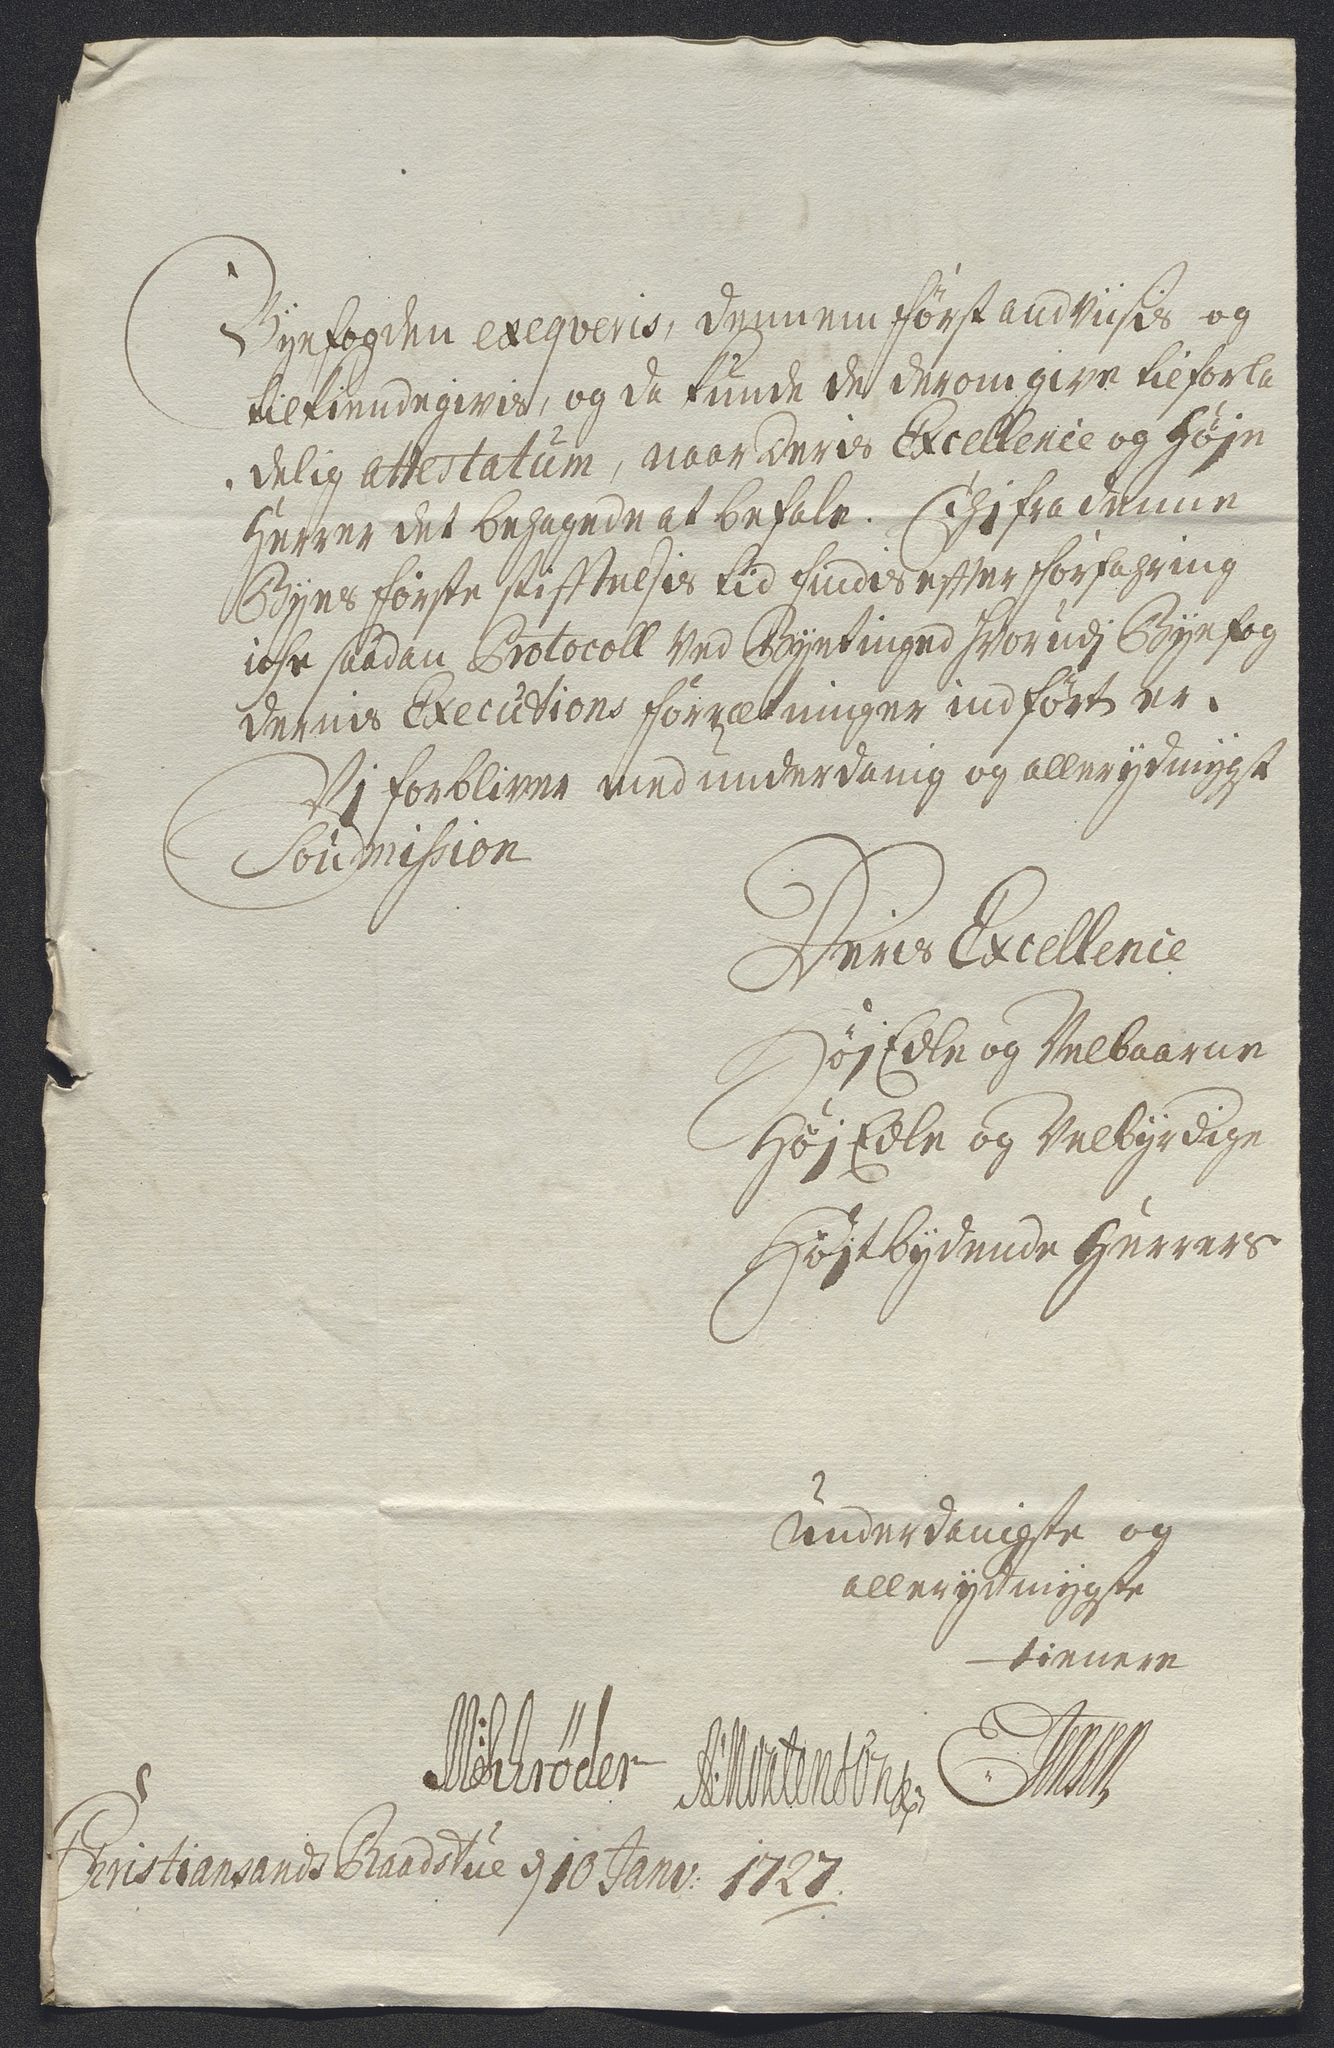 Byefogden exeqveris, dennem først andviisis og
tilkiendegivis, og da kunde de derom give tilforla
delig attestatum, naar Deris Excellence og Høje
Herrer det behagede at befale. Thj fra denne
Byes første stifftelsis tid findis effter forfahring
iche saadan Protocoll ved Byetinged hvorudj Byefog
dernis Executions forrætninger indført er.
Vj forbliver med underdanig og allerydmygst
Soudmission
Deris Excellence
Høj Edle og Velbaarne
Høj Edle og Velbyrdige
Højtbydende Herrers
underdanigste og
allerydmygste
tienere
Röder AMortensön Jensen
Christiansands Raadstue d 10 Janv: 1727.